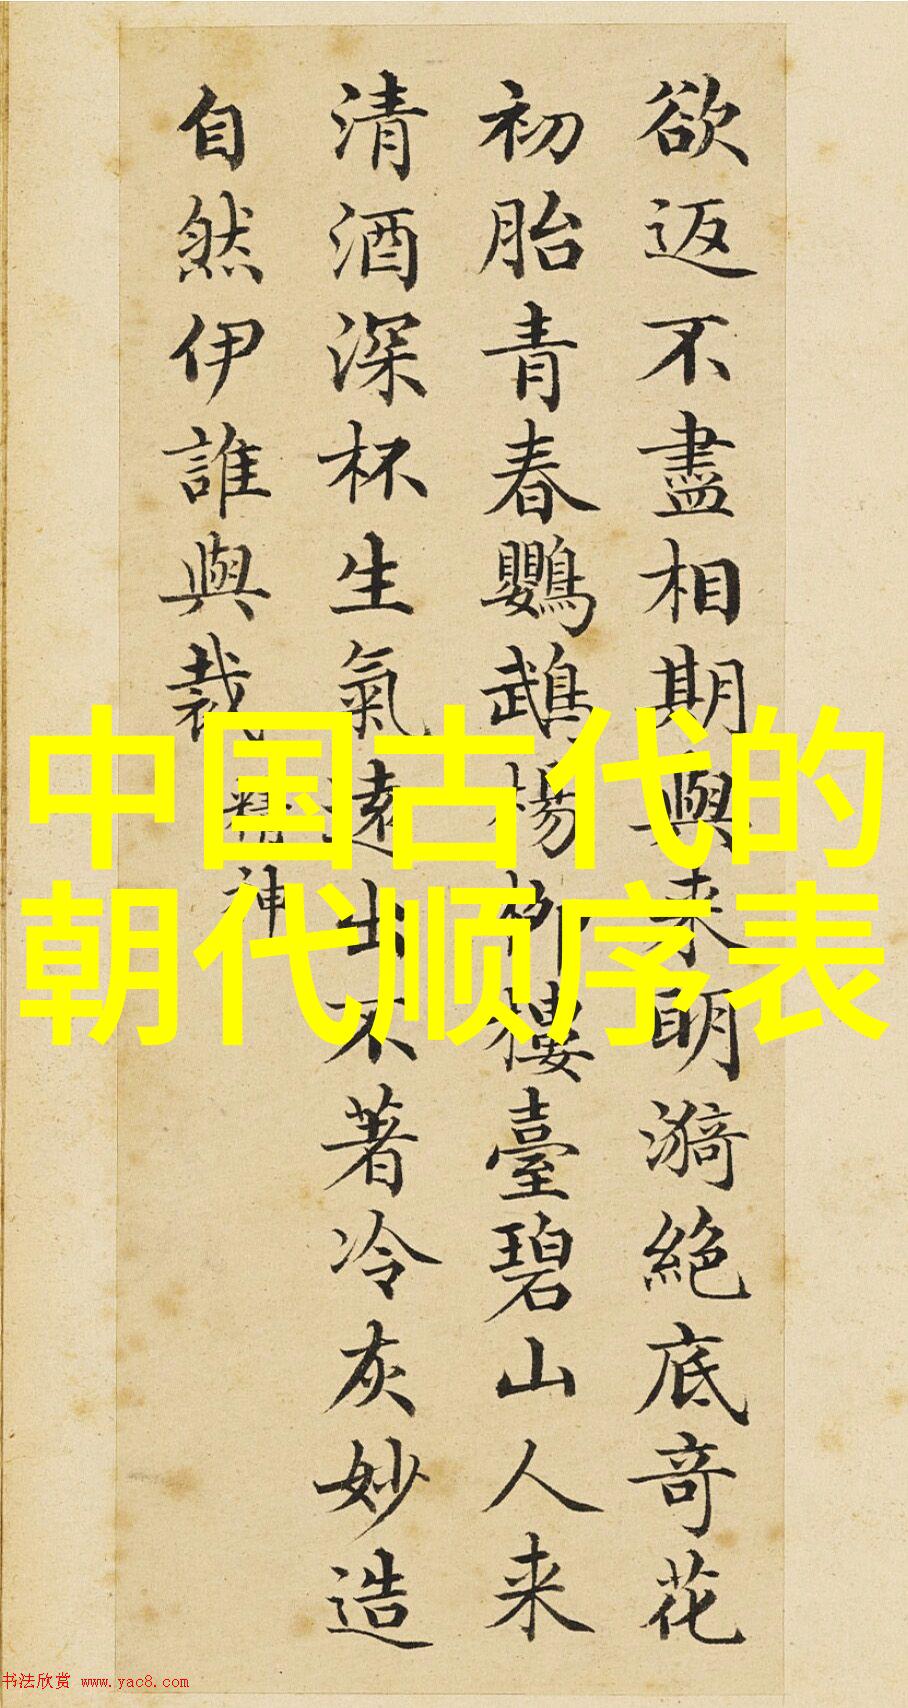 欲返不盡相期與来眀漪絶底竒花
初胎青春鸚鵡楊柳樓臺碧山人来
清酒深杯生氣遠出不著冷灰妙造
自然伊誰與裁
精神
中国古代的
朝代顺序表
书法欣赏 www.yac8.com